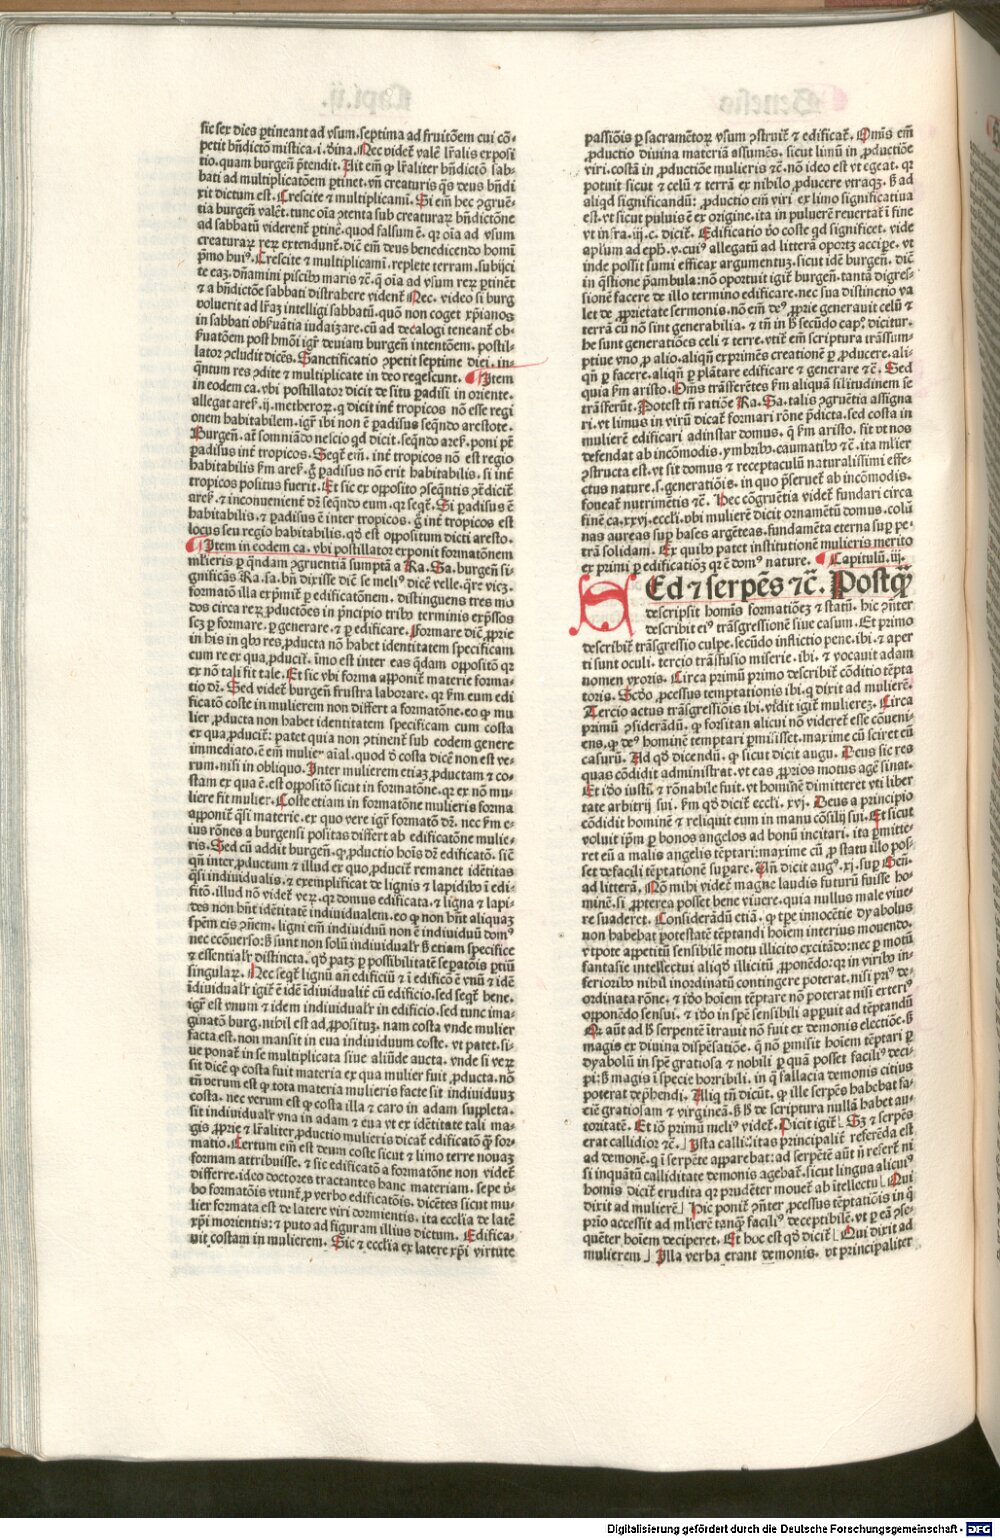 sic sex dies ꝑtineant ad vsum. septima ad fruitōem cui cō-
petit bn̄dictō mistica .i. diuina. Nec videt᷑ valē lr̄alis exposi
tio. quam burgen̄ p̄tendit. Ait em̄ ꝙ lr̄aliter bn̄dictō sab-
bati ad multiplicatōem ꝑtinet. vn̄ creaturis q̄s deus bn̄di
xit dictum est. Crescite ⁊ multiplicami. Si em̄ hec ꝯgrue-
tia burgen̄ valēt. tunc oīa ꝯtenta sub creaturaꝝ bn̄dictōne
ad sabbatū viderent᷑ ꝑtinē. quod falsum ē. qꝛ oīa ad vsum
creaturaꝝ reꝝ extendunt᷑. diē em̄ deus benedicendo homī
pͥmo huiꝰ. Crescite ⁊ multiplicamī. replete terram. subijci
te eaꝫ. dn̄amini piscibꝰ maris ⁊c̄. ꝙ oīa ad vsum reꝝ ꝑtinēt
⁊ a bn̄dictōe sabbati distrahere vident᷑. Nec. video si burg
voluerit ad lr̄aꝫ intelligi sabbatū. quō non coget xp̄ianos
in sabbati obẜuātia iudaizare. cū ad decalogi teneant᷑ ob-
ẜuatōem post hmōi igr̄ deuiam burgen̄ intentōem. postil-
lator ꝯcludit dicēs. Sanctificatio ꝯpetit septime diei. in-
qn̄tum res ꝯdite ⁊ multiplicate in deo reqescunt. Item
in eodem ca. vbi postillator dicit de situ ꝑadisi in oriente.
allegat areſ. ij. metheoroꝝ. ꝙ dicit int᷑ tropicos nō esse regi
onem habitabilem. igr̄ ibi non ē ꝑadisus seqn̄do arestote.
Burgen̄. at̄ somniādo nescio qd dicit. seqn̄do areſ. poni pt̄
ꝑadisus int᷑ tropicos. Seqt᷑ em̄. int᷑ tropicos nō est regio
habitabilis ẜm areſ. ḡ ꝑadisus nō erit habitabilis. si int᷑
tropicos positus fuerit. Et sic ex opposito ꝯseqn̄tis ꝯtdicit᷑
areſ. ⁊ inconuenient᷑ dꝛ seqn̄do eum. qꝛ seqt᷑. Si ꝑadisus ē
habitabilis. ⁊ ꝑadisus ē inter tropicos. ḡ int᷑ tropicos est
locus seu regio habitabilis. qd est oppositum dicti aresto.
Item in eodem ca. vbi postillator exponit formatōnem
mlieris ꝑ qn̄dam ꝯgruentiā sumptā a Ra. Sa. burgen̄ si-
gnificās Ra. sa. bn̄ dixisse dicē se meliꝰ dicē velle. qꝛe viꝫ.
formatō illa exp̄mit᷑ ꝑ edificatōnem. distinguens tres mo
dos circa reꝝ ꝓductōes in p̄ncipio tribꝰ terminis exp̄ssos
scꝫ ꝑ formare. ꝑ generare. ⁊ ꝑ edificare. Formare dicē ꝓprie
in his in qbꝰ res ꝓducta nō habet identitatem specificam
cum re ex qua ꝓducit᷑. īmo est inter eas qdam oppositō qꝛ
ex nō tali fit tale. Et sic vbi forma apponit᷑ materie forma-
tio dꝛ. Sed videt᷑ burgen̄ frustra laborare. qꝛ ẜm eum edi
ficatō coste in mulierem non differt a formatōne. eo ꝙ mu
lier ꝓducta non habet identitatem specificam cum costa
ex qua ꝓducit᷑: patet quia non ꝯtinent᷑ sub eodem genere
immediato. ē em̄ mulier aīal. quod d̄ costa dicē non est ve-
rum. nisi in obliquo. Inter mulierem etiaꝫ ꝓductam ⁊ co-
stam ex qua ē. est oppositō sicut in formatōne. qꝛ ex nō mu-
liere fit mulier. Coste etiam in formatōne mulieris forma
apponit᷑ qͣsi materie. ex quo vere igr̄ formatō dꝛ. nec ẜm e-
ius rōnes a burgensi positas differt ab edificatōne mulie-
ris. Sed cū addit burgen̄. ꝙ ꝓductio hoīs dꝛ edificatō. sic
qn̄ inter ꝓductum ⁊ illud ex quo ꝓducit᷑ remanet idētitas
qͣsi indiuidualis. ⁊ exemplificat de lignis ⁊ lapidibꝰ ī edi-
fitō. illud nō videt᷑ veꝝ. qꝛ domus edificata. ⁊ ligna ⁊ lapi-
des non hn̄t idētitatē indiuidualem. eo ꝙ non hn̄t aliquaꝫ
spēm eis ꝯn̄em. ligni em̄ indiuiduū non ē indiuiduū domꝰ
nec ecōuerso: sꝫ sunt non solū indiuidualr̄ sꝫ etiam specifice
⁊ essentialr̄ distincta. qd patꝫ ꝑ possibilitatē sepatōis ꝑtiū
singulaꝝ. Nec seqt᷑ lignū añ edificiū ⁊ ī edificō ē vnū ⁊ idē
īdiuidualr̄ igit᷑ ē idē īdiuidualit᷑ cū edificio. sed seqt᷑ bene.
igr̄ est vnum ⁊ idem indiuidualr̄ in edificio. sed tunc ima-
ginatō burg. nihil est ad ꝓpositꝫ. nam costa vnde mulier
facta est. non mansit in eua indiuiduum coste. vt patet. si-
ue ponat᷑ in se multiplicata siue aliūde aucta. vnde si veꝝ
sit dicē ꝙ costa fuit materia ex qua mulier fuit ꝓducta. nō
tn̄ verum est ꝙ tota materia mulieris facte sit indiuiduꝫ
costa. nec verum est ꝙ costa illa ⁊ caro in adam suppleta.
sit indiuidualr̄ vna in adam ⁊ eua vt ex idētitate tali ma-
gis ꝓprie ⁊ lr̄aliter ꝓductio mulieris dicat᷑ edificatō qͣ for-
matio. Certum em̄ est deum coste sicut ⁊ limo terre nouaꝫ
formam attribuisse. ⁊ sic edificatō a formatōne non videt᷑
differre. ideo doctores tractantes hanc materiam. sepe v̄-
bo formatōis vtunt᷑ ꝓ verbo edificatōis. dicētes sicut mu-
lier formata est de latere viri dormientis. ita ecclīa de latē
xp̄i morientis: ⁊ puto ad figuram illius dictum. Edifica-
uit costam in mulierem. Sic ⁊ ecclīa ex latere xp̄i virtute
passiōis ꝑ sacramētoꝝ vsum ꝯstruit᷑ ⁊ edificat᷑. Om̄s em̄
ꝓductio diuina materiā assumēs. sicut limū in ꝓductiōe
viri. costā in ꝓductiōe mulieris ⁊c̄. nō ideo est vt egeat. qꝛ
potuit sicut ⁊ celū ⁊ terrā ex nihilo ꝓducere vtraqꝫ. sꝫ ad
aliqd significandū: ꝓductio em̄ viri ex limo significatiua
est. vt sicut puluis ē ex origine. ita in puluerē reuertat᷑ ī fine
vt infra .iij. c. dicit᷑. Edificatio v̄o coste qd significet. vide
apl̄um ad eph. v. cuiꝰ allegatū ad litterā oportꝫ accipe. vt
inde possit sumi efficax argumentuꝫ. sicut idē burgen̄. diē
in qͣstione p̄ambula: nō oportuit igit᷑ burgen̄. tantā digres-
sionē facere de illo termino edificare. nec sua distinctio va
let de ꝓprietate sermonis. nō em̄ deꝰ ꝓprie generauit celū ⁊
terrā cū nō sint generabilia. ⁊ tn̄ in ħ secūdo capꝰ. dicitur.
he sunt generatiōes celi ⁊ terre. vtit᷑ em̄ scriptura trāssum-
ptiue vno ꝓ alio. aliqn̄ exprimēs creationē ꝑ ꝓducere. ali-
qn̄ ꝑ facere. aliqn̄ ꝑ plātare edificare ⁊ generare ⁊c̄. Sed
quia ẜm aristo. Om̄s trāsferētes ẜm aliquā silitudinem se
trāsferūt. Potest tn̄ ratiōe Ra. Sa. talis ꝯgruētia assigna
ri. vt limus in virū dicat᷑ formari rōne p̄dicta. sed costa in
mulierē edificari adinstar domus. ꝙ ẜm aristo. sit vt nos
defendat ab incōmodis. ymbribꝰ. caumatibꝰ ⁊c̄. ita mlier
ꝯstructa est. vt sit domus ⁊ receptaculū naturalissimi effe-
ctus nature. s. generatiōis. in quo p̄seruet᷑ ab incōmodis.
foueat᷑ nutrimētis ⁊c̄. Hec cōgruētia videt᷑ fundari circa
finē ca. xxvj. eccli. vbi mulierē dicit ornamētū domus. colū
nas aureas sup̄ bases argēteas. fundamēta eterna sup̄ pe-
trā solidam. Ex quibꝰ patet institutionē mulieris merito
ex primi ꝑ edificatiōꝫ qꝛ ē domꝰ nature. Capitulū. iij.
Sed ⁊ serpēs ⁊c̄. Postqͣꝫ
descripsit homīs formatiōeꝫ ⁊ statū. hic ꝯn̄ter
describit eiꝰ trāsgressionē siue casum. Et primo
describit᷑ trāsgressio culpe. secūdo inflictio pene. ibi. ⁊ aper
ti sunt oculi. tercio trāsfusio miserie. ibi. ⁊ vocauit adam
nomen vxoris. Circa primū primo describit᷑ cōditio tēpta
toris. Scd̄o ꝓcessus temptationis ibi. q dixit ad mulierē.
Tercio actus trāsgressiōis ibi. vidit igit᷑ muliereꝫ. Circa
primū ꝯsiderādū. ꝙ forsitan alicui nō videret᷑ esse cōueni-
ens. ꝙ deꝰ hominē temptari ꝑmisisset. maxīe cū sciret eū
casurū. Ad qd dicendū. ꝙ sicut dicit augu. Deus sic res
quas cōdidit administrat. vt eas ꝓprios motus agē sinat.
Et iō iustū ⁊ rōnabile fuit. vt hominē dimitteret vti liber
tate arbitrij sui. ẜm qd dicit᷑ eccli. xvj. Deus a principio
cōdidit hominē ⁊ reliquit eum in manu cōsilij sui. Et sicut
voluit ip̄m ꝑ bonos angelos ad bonū incitari. ita ꝑmitte-
ret eū a malis angelis tēptari: maxime cū ꝓ statu illo pos-
set defacili tēptationē supare. Vn̄ dicit augꝰ. xj. sup̄ Gen̄.
ad litterā. Nō mihi videt᷑ magne laudis futurū fuisse ho-
minē. si ꝓpterea posset bene viuere. quia nullus male viue-
re suaderet. Considerādū etiā. ꝙ tꝑe innocētie dyabolus
non habebat potestatē tēptandi hoīem interius mouendo.
vtpote appetitū sensibilē motu illicito excitādo: nec ꝑ motū
fantasie intellectui aliqd illicitū ꝓponēdo: qꝛ in viribꝰ in-
feriorībꝰ nihil inordinatū contingere poterat. nisi priꝰ de-
ordinata rōne. ⁊ iō hoīem tēptare nō poterat nisi exteriꝰ
opponēdo sensui. ⁊ iō in spē sensibili apꝑuit ad tēptandū
Qꝛ aūt ad ħ serpentē ītrauit nō fuit ex demonis electiōe. sꝫ
magis ex diuina dispēsatiōe. q nō ꝑmisit hoīem tēptari ꝑ
dyabolū in spē gratiosa ⁊ nobili ꝑ quā posset faciliꝰ deci-
pi: sꝫ magis ī specie horribili. in q fallacia demonis citius
poterat dep̄hendi. Aliq tn̄ dicūt. ꝙ ille serpēs habebat fa-
ciē gratiosam ⁊ virgineā. sꝫ ħ de scriptura nullā habet au-
toritatē. Et iō primū meliꝰ videt᷑. Dicit igit᷑. Sꝫ ⁊ serpēs
erat callidior ⁊c̄. Ista calliditas principalit᷑ referēda est
ad demonē. q ī serpēte apparebat: ad serpētē aūt n̄ refert᷑ ni
si inquātū calliditate demonis agebat᷑. sicut lingua alicuiꝰ
homis dicit᷑ erudita qꝛ prudēter mouet᷑ ab ītellectu. Qui
dixit ad mulierē. Hic ponit᷑ ꝯn̄ter ꝓcessus tēptatiōis in q
prīo accessit ad mlierē tanqͣꝫ faciliꝰ deceptibilē. vt ꝑ eā ꝯse-
quēter hoīem deciperet. Et hoc est qd dicit᷑. Qui dixit ad
mulierem. Illa verba erant demonis. vt principaliter
Digitalisierung gefördert durch die Deutsche Forschungsgemeinschaft - DFG